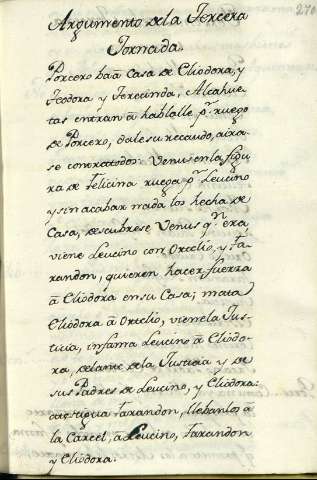 270
Argumento de la Tercera
Jornada.
Porcero ba â Casa de Eliodora, y
Teodora y Terecinda, Alcahue-
tas entran â hablalle pr. ruego
de Porcero, dale su recaudo, aira-
se con todos: Venus en la figu
ra de Felicina ruega pr. Leucino
y sin acabar nada los hecha de
Casa, descubrese Venus qn. era,
viene Leucino con Ortelio, y Fa-
randon, quieren hacer fuerza
â Eliodora en su Casa; mata
Eliodora â Ortelio, viene la Jus-
ticia, infama Leucino â Eliodo-
ra, delante de la Justicia y de
sus Padres de Leucino, y Eliodora:
atestigua Farandon, llebanlos â
la Carcel, â Leucino, Farandon
y Eliodora.